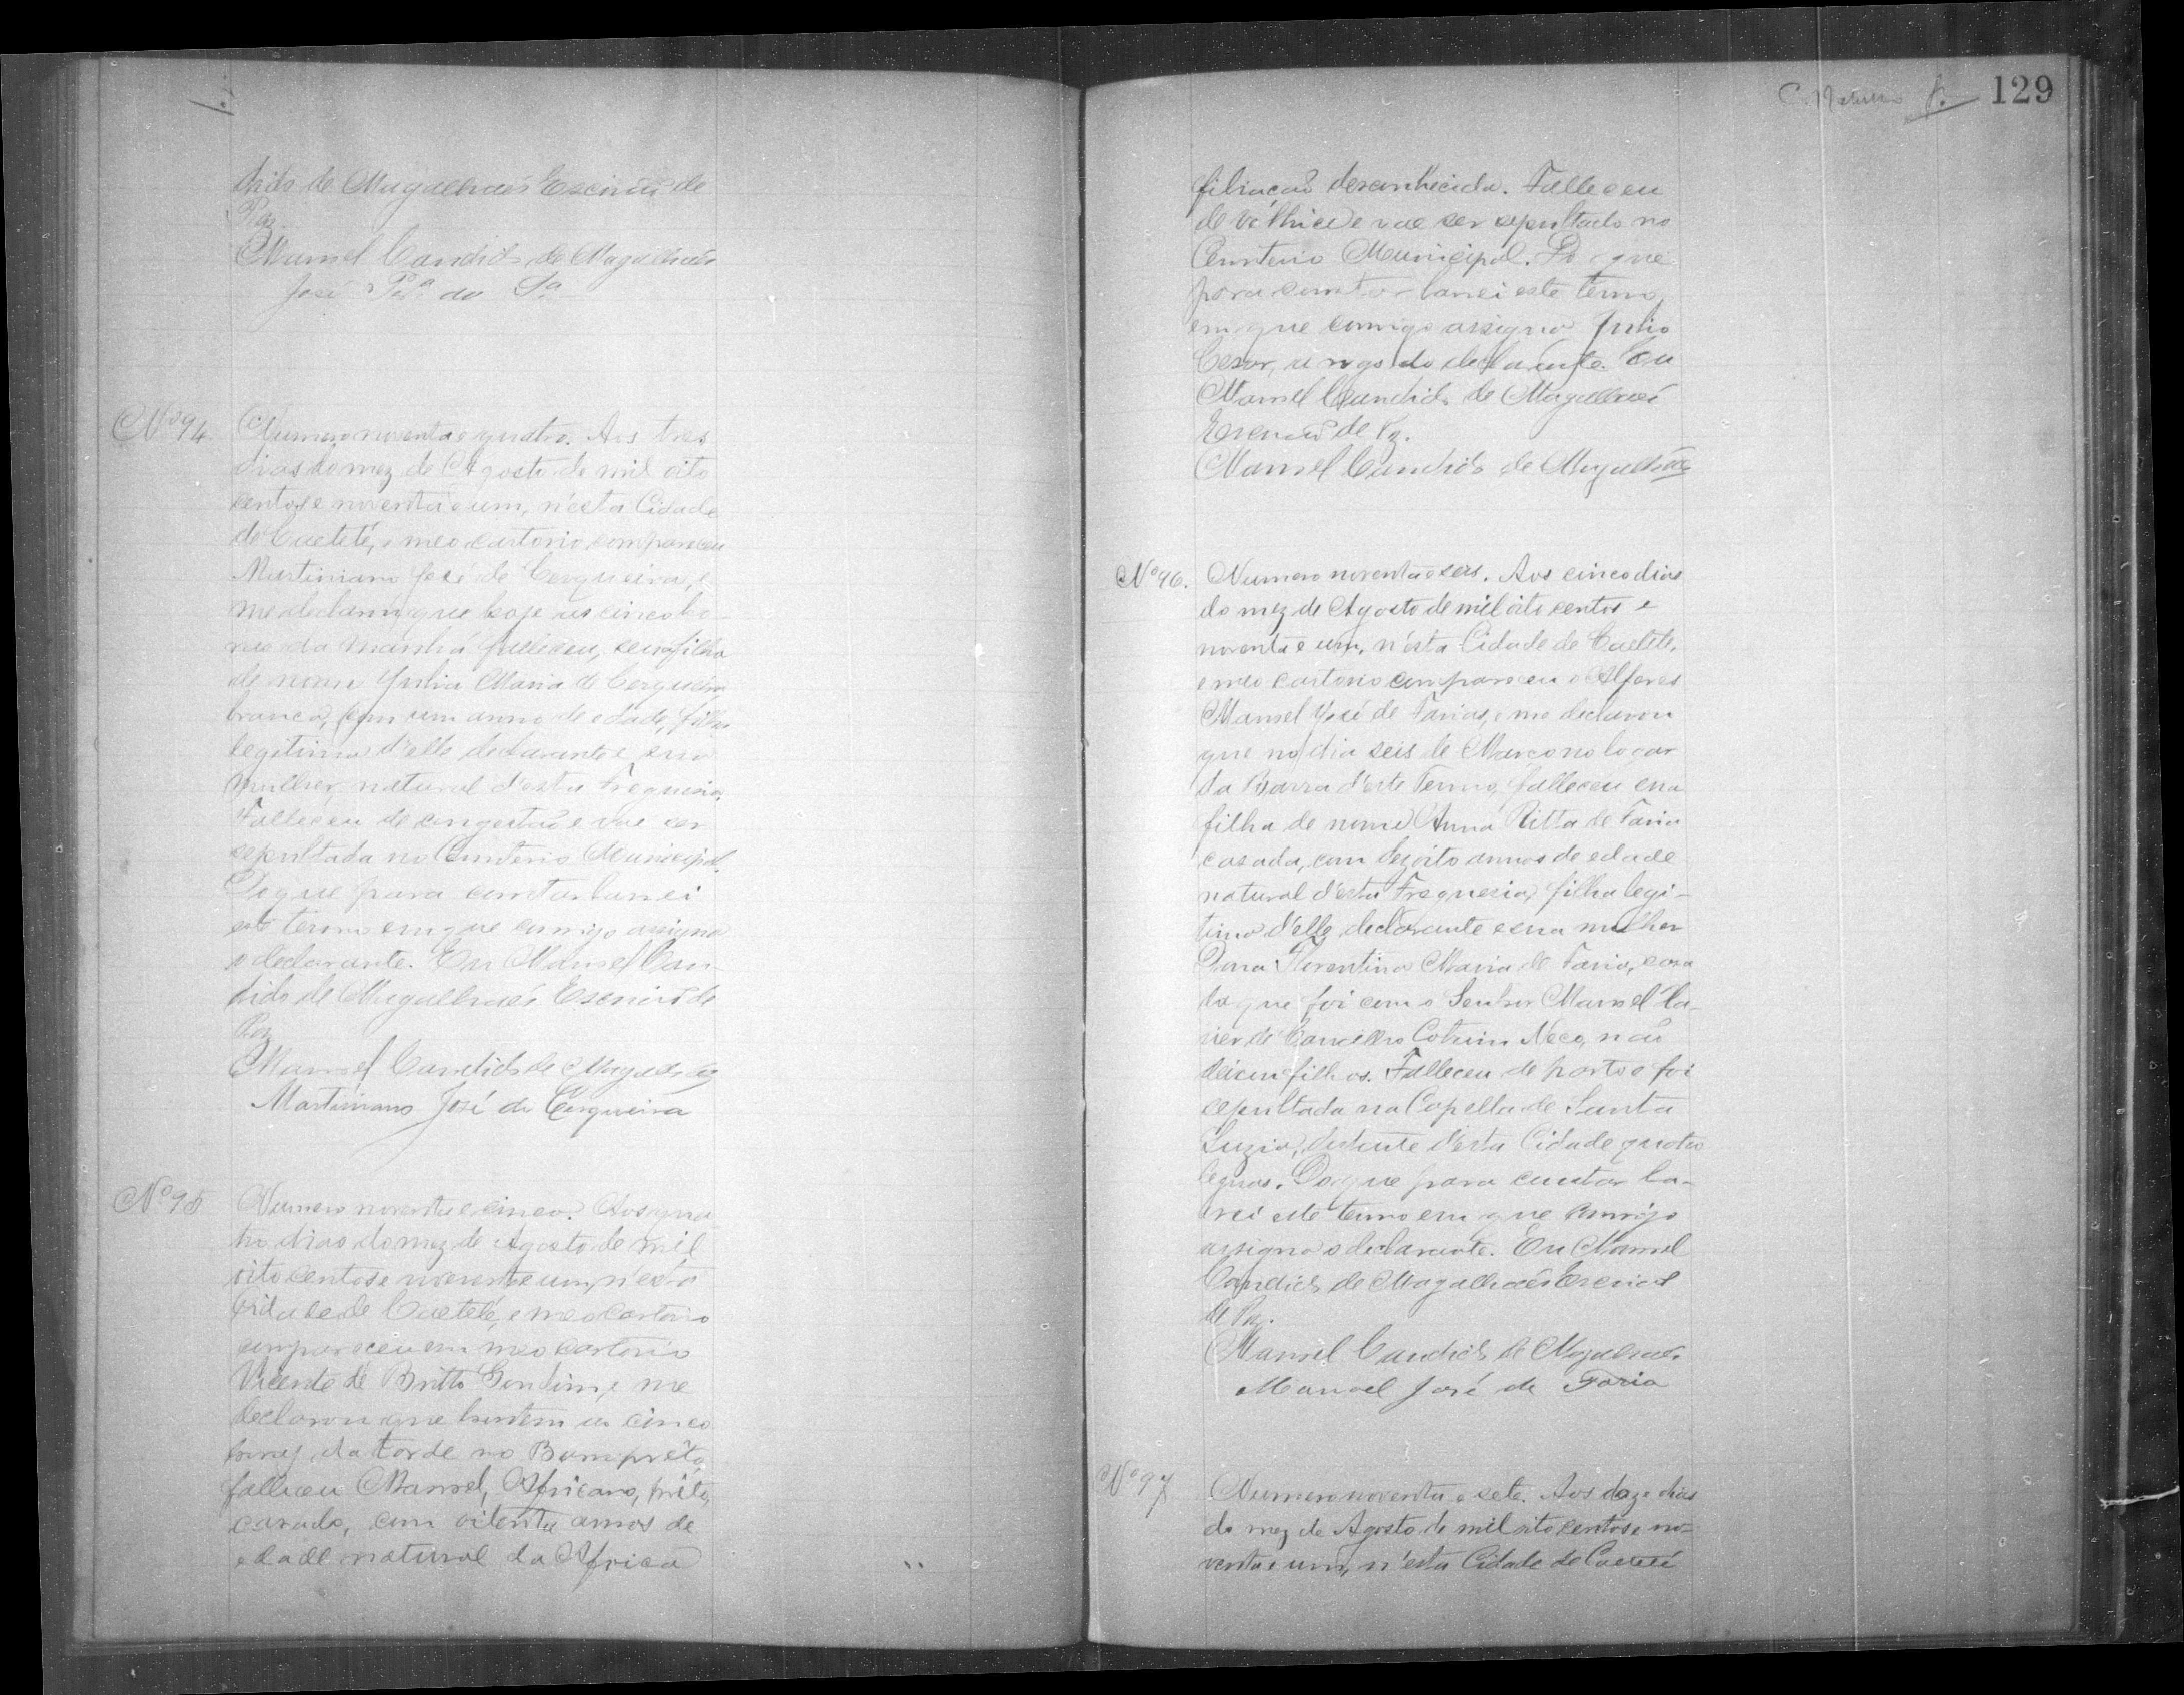 dido de Magalhaés Escrivaõ de
Paz.
Manoel Candido de Magalhaés
José Per.ª da S.ª
Nº 94
Numero noventa e quatro. Aos tres
dias do mez de Agosto de mil oito
centos e noventa e um, n'esta Cidade
de Caeteté, e meo cartorio compareceu
Martiniano José de Cerqueira, e
me declarou que hoje as cinco ho-
ras da manhã falleceu, sua filha
de nome Julia Maria de Cerqueira
branca, com um anno de edade, filha
legitima d'elle declarante e sua
mulher, natural d'esta Freguesia.
Falleceu de congestaõ e vae ser
sepultada no Cemiterio Municipal.
Do que para constar lavrei
este termo em que comigo assigna
o declarante. Eu Manoel Can-
dido de Magalhaés Escrivaõ de
Paz
Manoel Candido de Magalhaés
Martiniano José de Cerqueira
Nº 95
Numero noventa e cinco. Aos qua-
tro dias do mez de Agosto de mil
oito centos e noventa e um, n'esta
Cidade de Caeteté, e meo cartorio
compareceu em meo cartorio
Vicente de Britto Gondim, e me
declarou que hontem as cinco
horas da tarde no
falleceu Manoel, Africano, preto,
casado, com oitenta annos de
edade natural da Africa
129
filiaçaõ desconhecida. Falleceu
de velhice e vae ser sepultado no
Cemiterio Municipal. Do que
para constar lavrei este termo,
em que comigo assigna Julio
Cesar, a rogo do declarante. Eu
Manoel Candido de Magalhaés
Escrivaõ de Pz.
Manoel Candido de Magalhaés
Nº 96.
Numero noventa e seis. Aos cinco dias
do mez de Agosto de mil oito centos e
noventa e um, n'esta Cidade de Caeteté,
e meo cartorio compareceu o Alferes
Manoel José de Farias, e me declarou
que no dia seis de Março no logar
da Barra d'este Termo, falleceu sua
filha de nome Anna Ritta de Faria
casada, com dezoito annos de edade
natural d'esta Freguezia, filha legi-
tima d'elle declarante e sua mulher
Dona Florentina Maria de Faria, casa
da que foi com o Senhor Manoel Xa-
vier de Carvalho Cotrim Neco, naõ
deixou filhos. Falleceu de parto e foi
sepultada na Capella de Santa
Luzia, distante d'esta Cidade quatro
legoas. Do que para constar la-
vrei este termo em que comigo
assigna o declarante. Eu Manoel
Candido de Magalhaés Escrivaõ
de Paz.
Manoel Candido de Magalhaés
Manoel José de Faria
Nº 97
Numero noventa e sete. Aos doze dias
do mez de Agosto de mil oito centos e no-
venta e um, n'esta Cidade de Caeteté